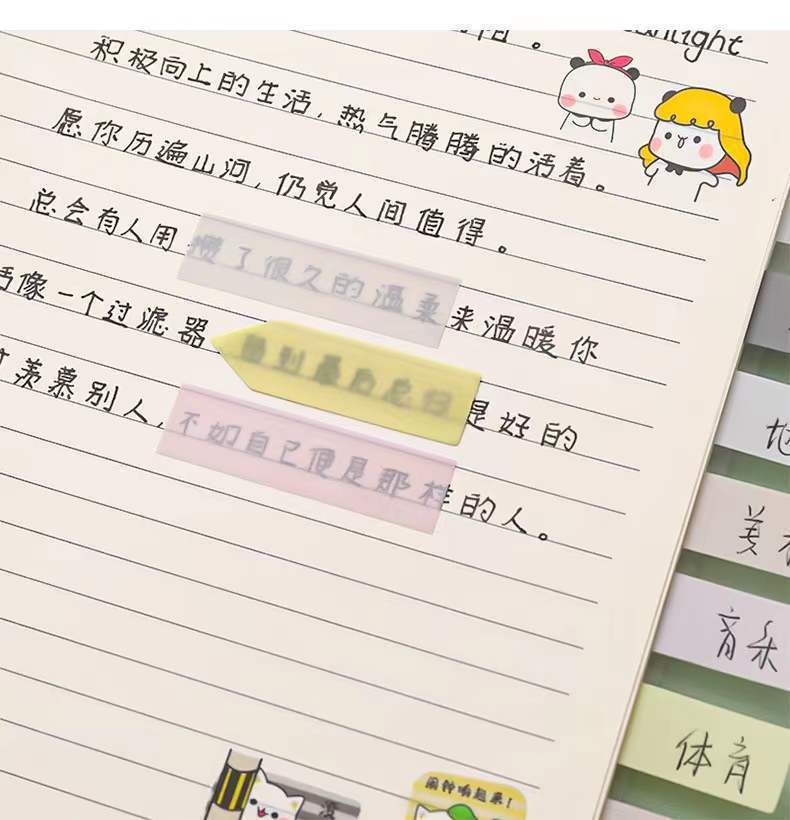 积极向上的生活,热气腾腾的活着。
愿你历遍山河,仍觉人间值得。
总会有人用攒了很久的温柔来温暖你
像一个过滤器 到最后总归是好的
羡慕别人,不如自己便是那样的人。
地
美
音乐
体育
闹钟响起来!
没